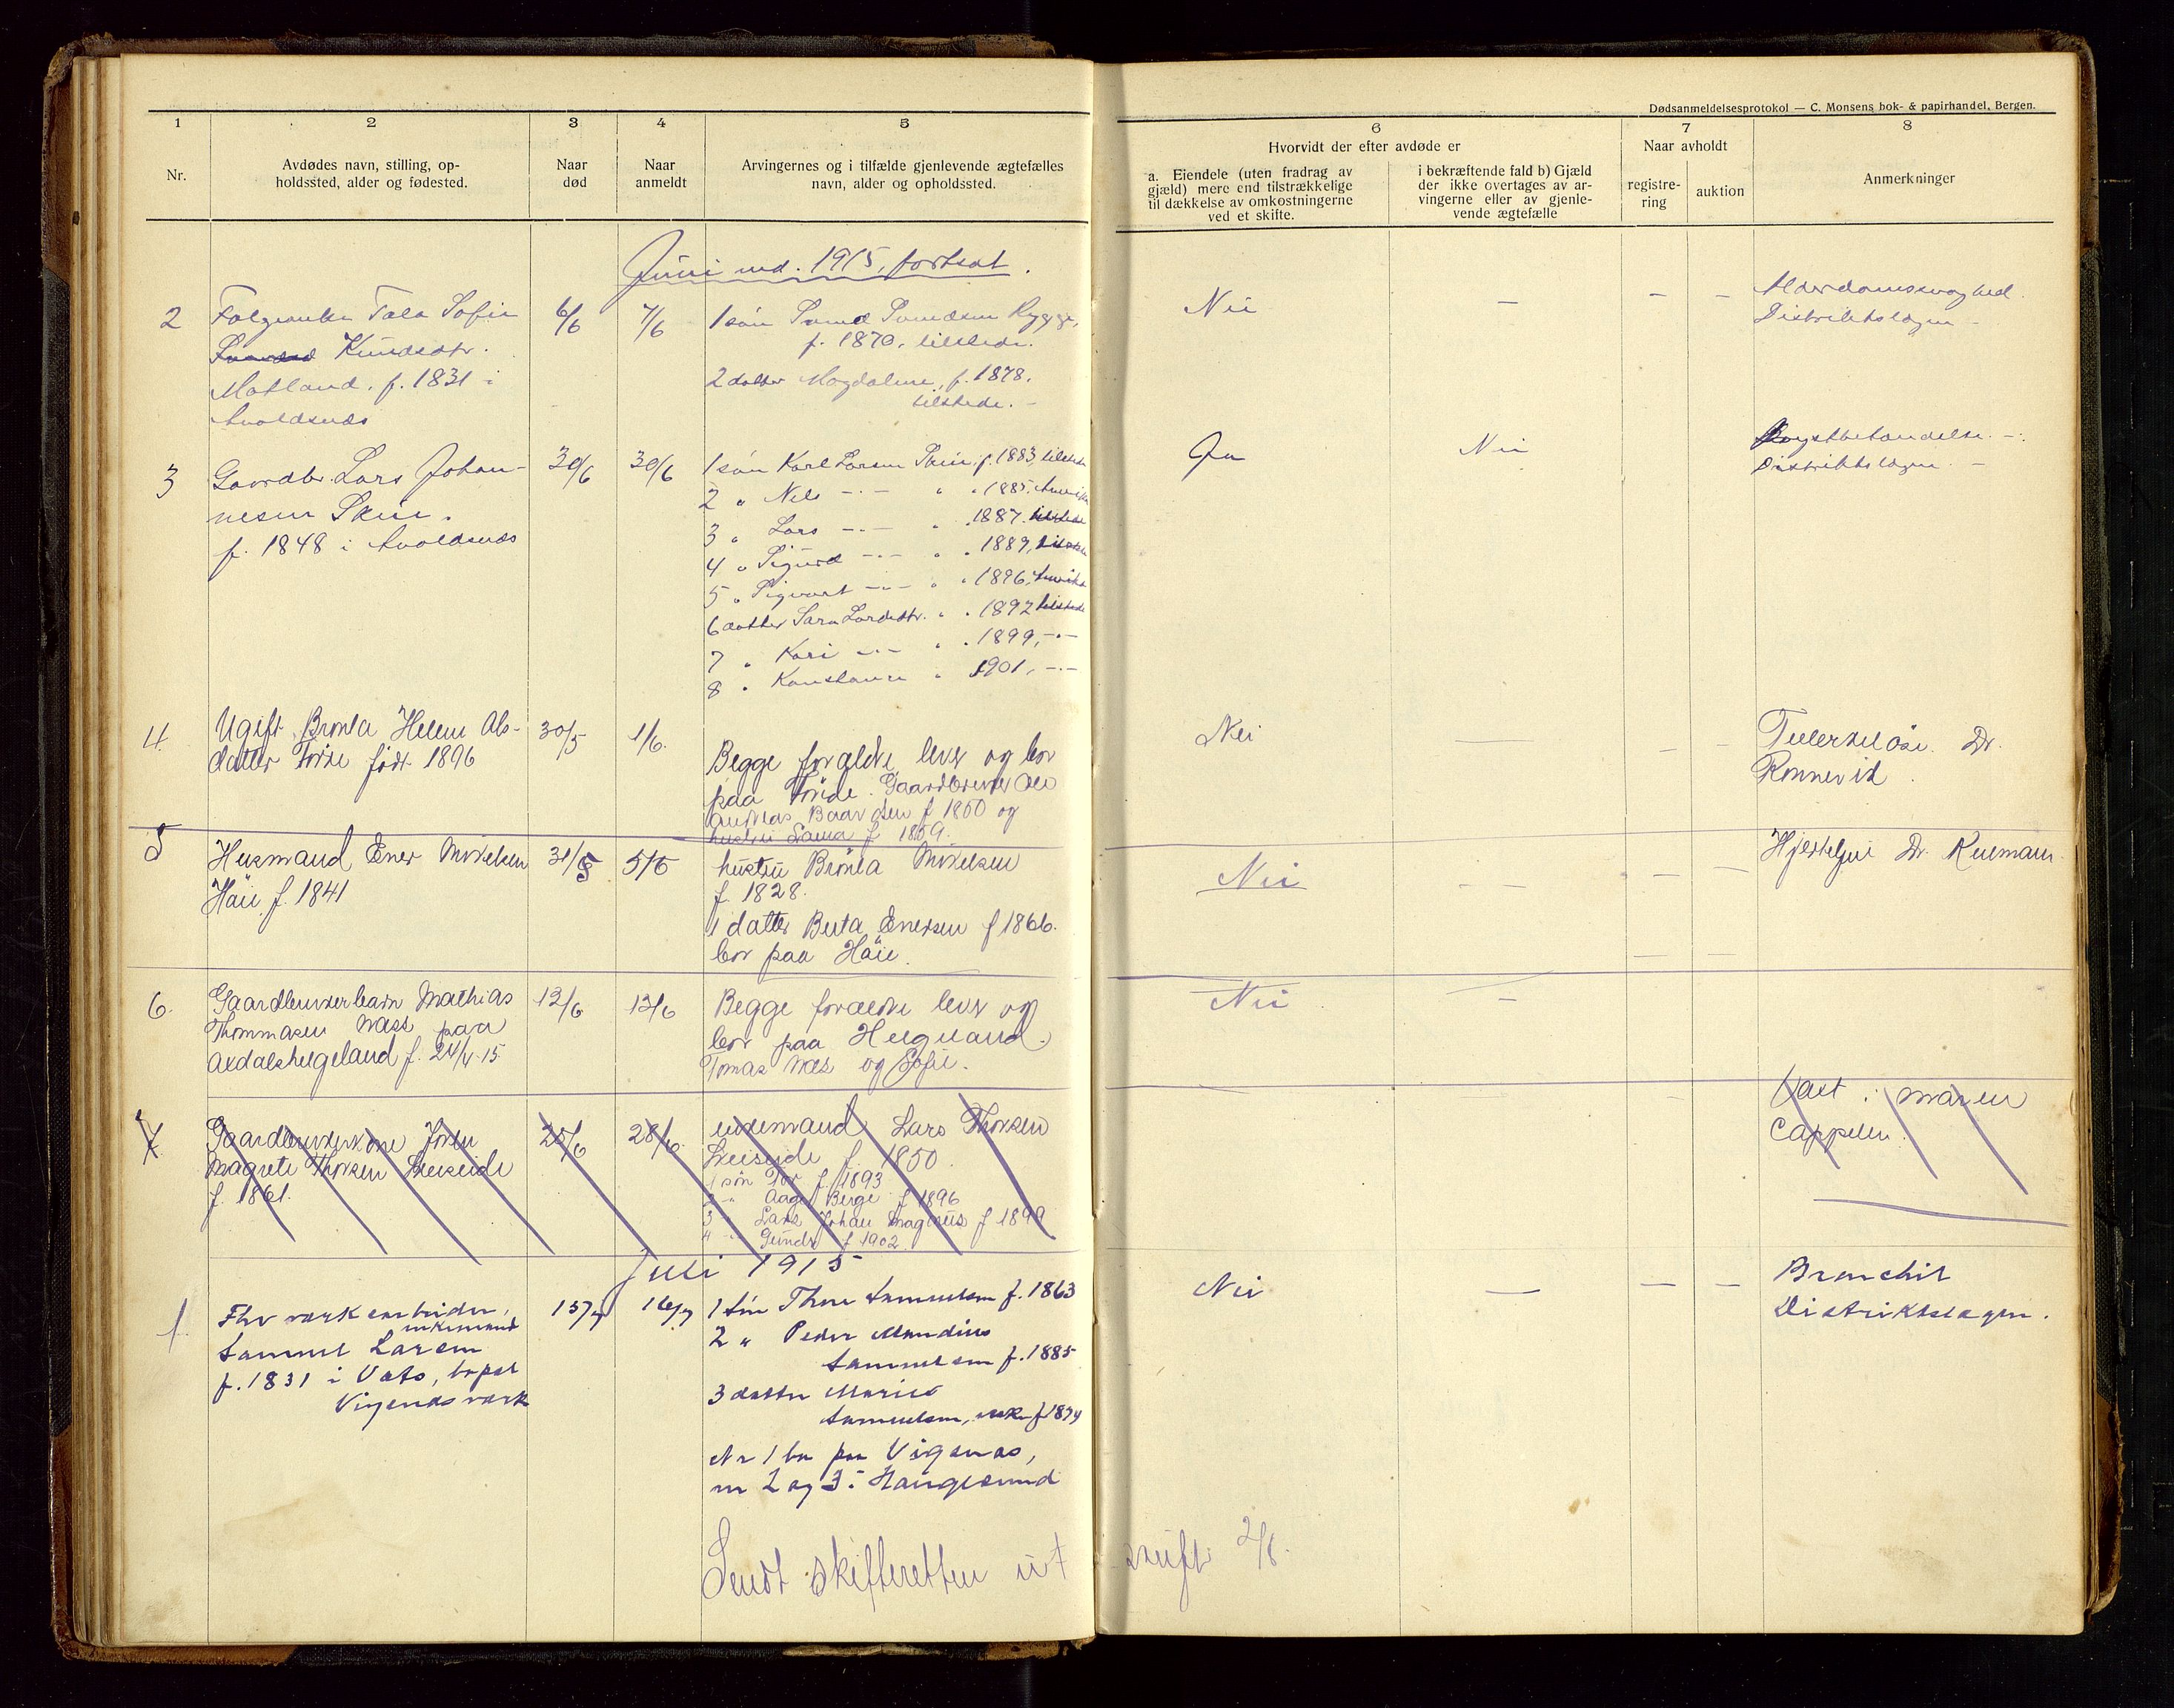 Dødsanmeldelsesprotokol — C. Monsens bok- & papirhandel, Bergen.
1 2 3 4 5 6 7 8
Nr.
Avdødes navn, stilling, op-
holdssted, alder og fødested.
Naar
død
Naar
anmeldt
Arvingernes og i tilfælde gjenlevende ægtefælles
navn, alder og opholdssted.
Hvorvidt der efter avdøde er
a. Eiendele (uten fradrag av
gjæld) mere end tilstrækkelige
til dækkelse av omkostningerne
ved et skifte.
i bekræftende fald b) Gjæld
der ikke overtages av ar-
vingerne eller av gjenle-
vende ægtefælle
Naar avholdt
registre-
ring
auktion
Anmerkninger
Juni md. 1915, fortsat.
2
Sofie
Knudsdtr.
Matland. f. 1831 i
Avaldsnes
6/6
7/6
1 søn
f. 1870. tilstede.
2 datter Magdaline, f. 1878.
tilstede. -
Nei
—
–
–
Alderdomssvaghed.
Distriktslægen -
3
Gaardbr. Lars Johan-
nesen
f. 1848 i Avaldsnes
30/6
30/6
1 søn Karl Larsen f. 1883, tilstede
2 " Nils -"- " " 1885. Amerika
3 " Lars -"- " 1887. tilstede
4 " Sigurd -"- " " 1889, tilstede
5 " Sigvart -"- " " 1896. Amerika
6 datter Sara Larsdtr. " " 1892 tilstede
7 " Kari -"- " " 1899, -"-
8 " Konstanse " 1901, -"-
Ja
Nei
Distriktslægen. -
4
Ugift Bronla Helene
datter født 1896
30/5
1/6.
Begge forældre lever og bor
paa Gaardbruker
Andreas f 1850 og
hustru f 1859.
Nei
—
–
–
Tuberkulose. Dr.
5
Husmand Ener Mikelsen
Håie f. 1841
31/5
5/6
hustru Bronla Mikelsen
f. 1828.
1 datter Berta Enersen f 1866.
bor paa Håie.
Nei
– –
–
–
Dr.
6.
Gaardbrukerbarn Mathias
Thommasen paa
Axdalshelgeland f. 24/4-15.
12/6
13/6
Begge forældre lever og
bor paa Helgeland.
Tomas og Sofie.
Nei
–
7
Gaardbrukerkone
Magrete Thorsen
f. 1861.
25/6
28/6.
enkemand Lars Thorsen
f. 1850
1 søn Tor f. 1893
2 -"- Aage Berge f 1896
3 Lars Johan Magnus f 1899
4 -"- f 1902.
i maven
Cappelen.
Juli 1915
1.
Fhv værksarbeider,
enkemand
Samuel Larsen
f. 1831 i Vats, bopæl
Vigsnes værk
15/7
16/7
1 søn Thore Samuelsen f. 1863
2 " Peder
Samuelsen f. 1885
3 datter
Samuelsen, enke f 1874
Nr 1 bor paa Vigsnes,
nr 2 og 3 i Haugesund
Nei
—
–
–
Bronchit
Distriktslægen.
Sendt skifteretten utskrift 2/8.